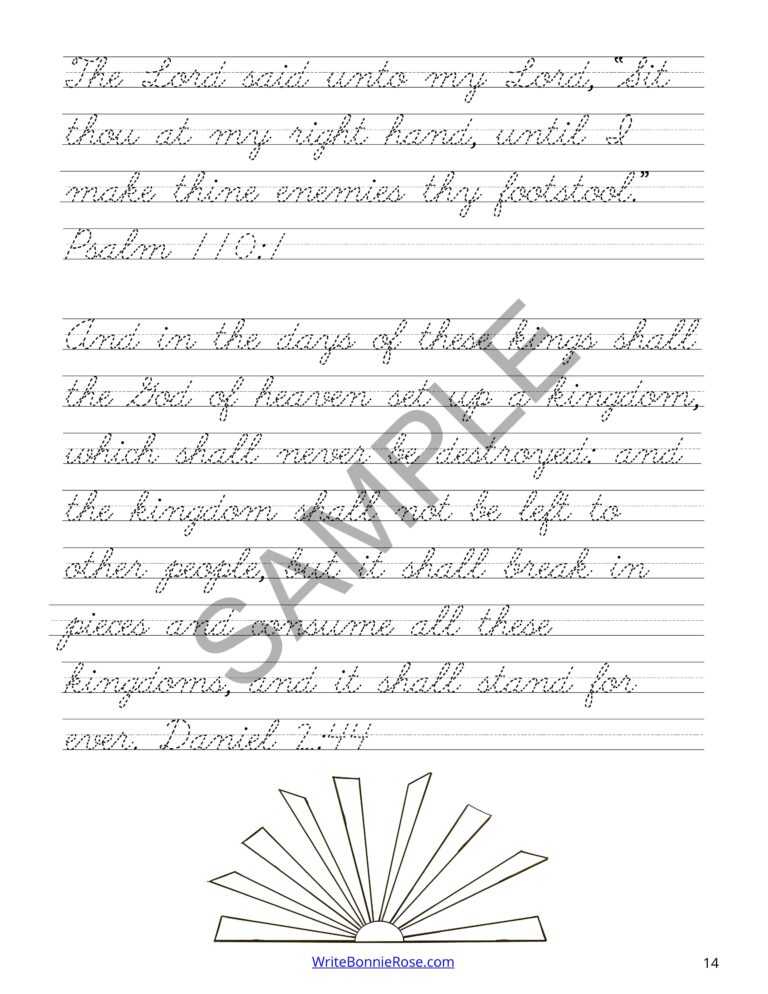 The Lord said unto my Lord, "Sit
thou at my right hand, until I
make thine enemies thy footstool."
Psalm 110:1
And in the days of these kings shall
the God of heaven set up a kingdom,
which shall never be destroyed: and
the kingdom shall not be left to
other people, but it shall break in
pieces and consume all these
kingdoms, and it shall stand for
ever. Daniel 2:44
SAMPLE
WriteBonnieRose.com
14